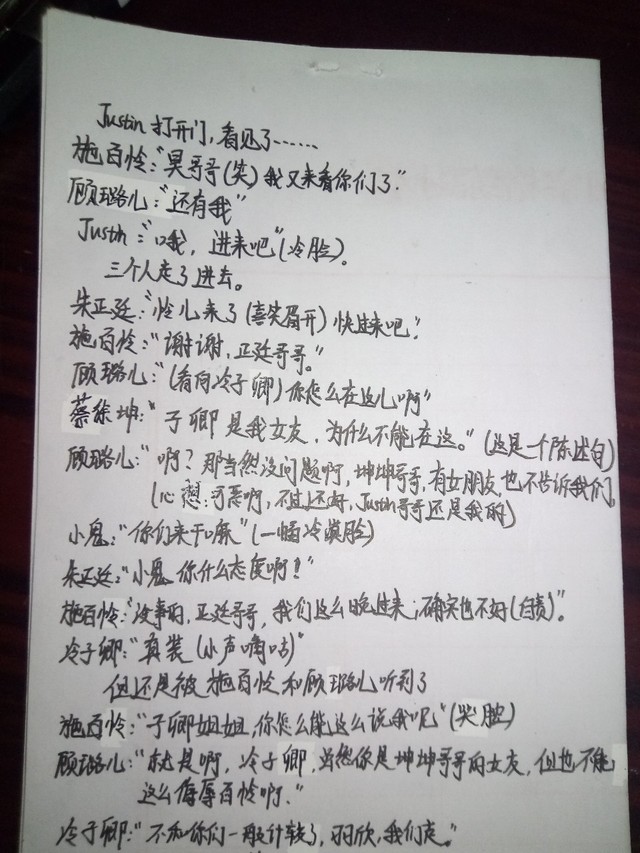 Justin 打开门，看见了……
施百怜：“昊哥哥(笑)我又来看你们了”
顾璐儿：“还有我”
Justin：“哦，进来吧”(冷脸)。
三个人走了进去。
朱正廷：“怜儿来了(喜笑眉开)快进来吧！
施百怜：“谢谢，正廷哥哥。”
顾璐儿：“(看向冷子卿)你怎么在这儿啊”
蔡徐坤：“子卿是我女友，为什么不能在这。”(这是一个陈述句)
顾璐儿：“啊？那当然没问题啊，坤坤哥哥，有女朋友，也不告诉我们，
(心想：可恶啊，不过还好，Justin哥哥还是我的)
小鬼：“你们来干嘛”(一幅冷漠脸)
朱正廷：“小鬼你什么态度啊！”
施百怜：“没事的，正廷哥哥，我们这么晚过来，确实也不好(自责)”。
冷子卿：“真装(小声嘀咕)”
但还是被施百怜和顾璐儿听到了
施百怜：“子卿姐姐，你怎么能这么说我呢”(哭脸)
顾璐儿：“就是啊，冷子卿，虽然你是坤坤哥哥的女友，但也不能
这么侮辱百怜啊。”
冷子卿：“不和你们一般计较了，羽欣，我们走。”